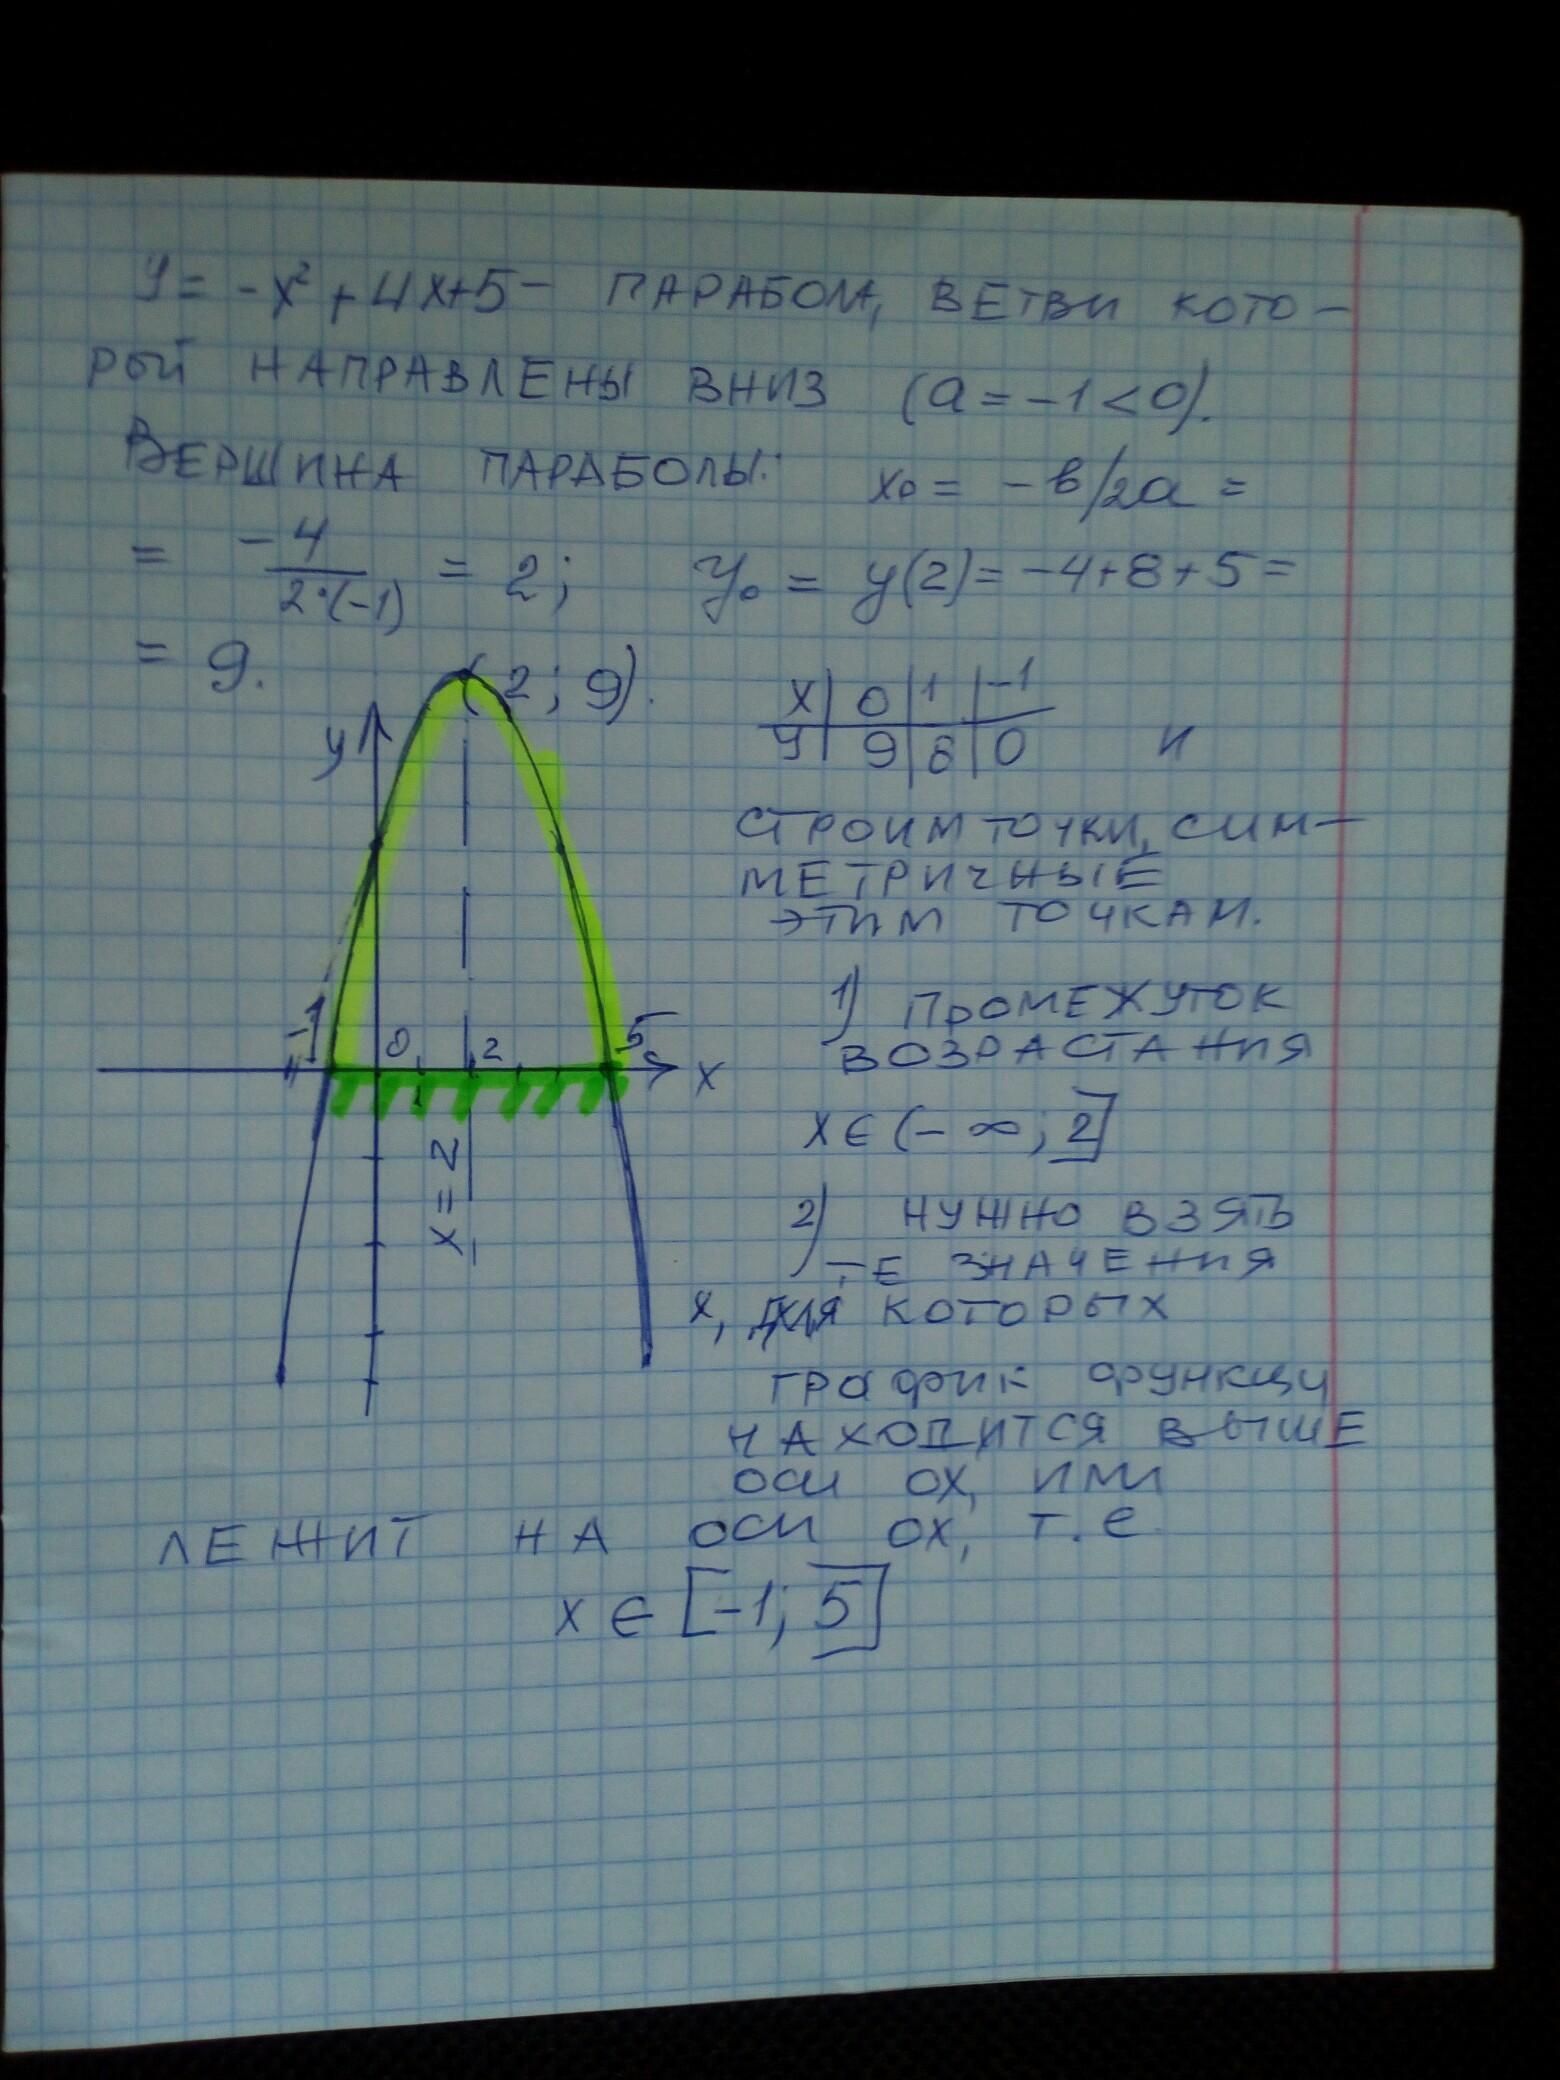 y = -x² + 4x+5 - ПАРАБОЛА, ВЕТВИ КОТО-
РОЙ НАПРАВЛЕНЫ ВНИЗ (a = -1 < 0).
ВЕРШИНА ПАРАБОЛЫ: x₀ = -b/2a =
= -4/2·(-1) = 2; y₀ = y(2) = -4+8+5 =
= 9. (2; 9).
x | 0 | 1 | -1
y | 9 | 8 | 0 и
СТРОИМ ТОЧКИ, СИМ-
МЕТРИЧНЫЕ
ЭТИМ ТОЧКАМ.
y
-1 0 1 2 5 x
x = 2
1) ПРОМЕЖУТОК
ВОЗРАСТАНИЯ
x ∈ (-∞; 2]
2) НУЖНО ВЗЯТЬ
ТЕ ЗНАЧЕНИЯ
x, ДЛЯ КОТОРЫХ
ГРАФИК ФУНКЦИ
НАХОДИТСЯ ВЫШЕ
ОСИ ОХ, ИЛИ
ЛЕЖИТ НА ОСИ ОХ, Т.Е.
x ∈ [-1; 5]